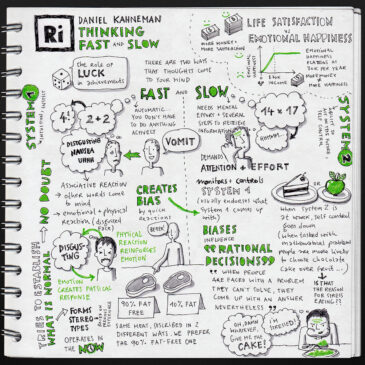 Ri
DANIEL KAHNEMAN
THINKING
FAST AND SLOW
LIFE SATISFACTION
VS
EMOTIONAL HAPPINESS
MORE MONEY =
the role of
LUCK
in achievements
THERE ARE TWO WAYS
THAT THOUGHTS COME
TO YOUR MIND
EMOTIONAL
HAPPINESS
SYSTEM 1
FAST AND SLOW
4!
2+2
AUTOMATIC
YOU DON'T HAVE
TO DO ANYTHING
ACTIVELY
NEEDS MENTAL
EFFORT &
STEPS TO
INFORMATION
14 × 17
DISGUSTING
VOMIT
DEMANDS
ATTENTION & EFFORT
SYSTEM 2
ASSOCIATIVE REACTION
→ other words come
to mind
→ emotional + physical
reaction (disgusted
face)
CREATES
BIAS
by quick
reactions
monitors & controls
SYSTEM 1
System 1 comes up
with)
OR
when System 2 is
at work, self control
goes down
(when tasked with
mathematical problem
people are more likely
to choose chocolate
cake over fruit ...)
DISGUS-
TING
PHYSICAL
REACTION
REINFORCES
EMOTION
EMOTION
CREATES PHYSICAL
RESPONSE
BIASES
INFLUENCE
RATIONAL
DECISIONS
"WHEN PEOPLE
ARE FACED WITH A PROBLEM
THEY CAN'T SOLVE, THEY
COME UP WITH AN ANSWER
NEVERTHELESS"
→ IS THAT
THE REASON
FOR STRESS
EATING??
TRIES TO ESTABLISH
→ NO DOUBT
→ FORMS
STEREO-
TYPES
OPERATES IN
THE NOW
90% FAT
FREE
10% FAT
SAME MEAT, DESCRIBED IN 2
DIFFERENT WAYS. WE PREFER
THE 90% FAT-FREE ONE
OH, DAMN
WHATEVER,
GIVE ME THE
CAKE!
I'M
STRESSED!